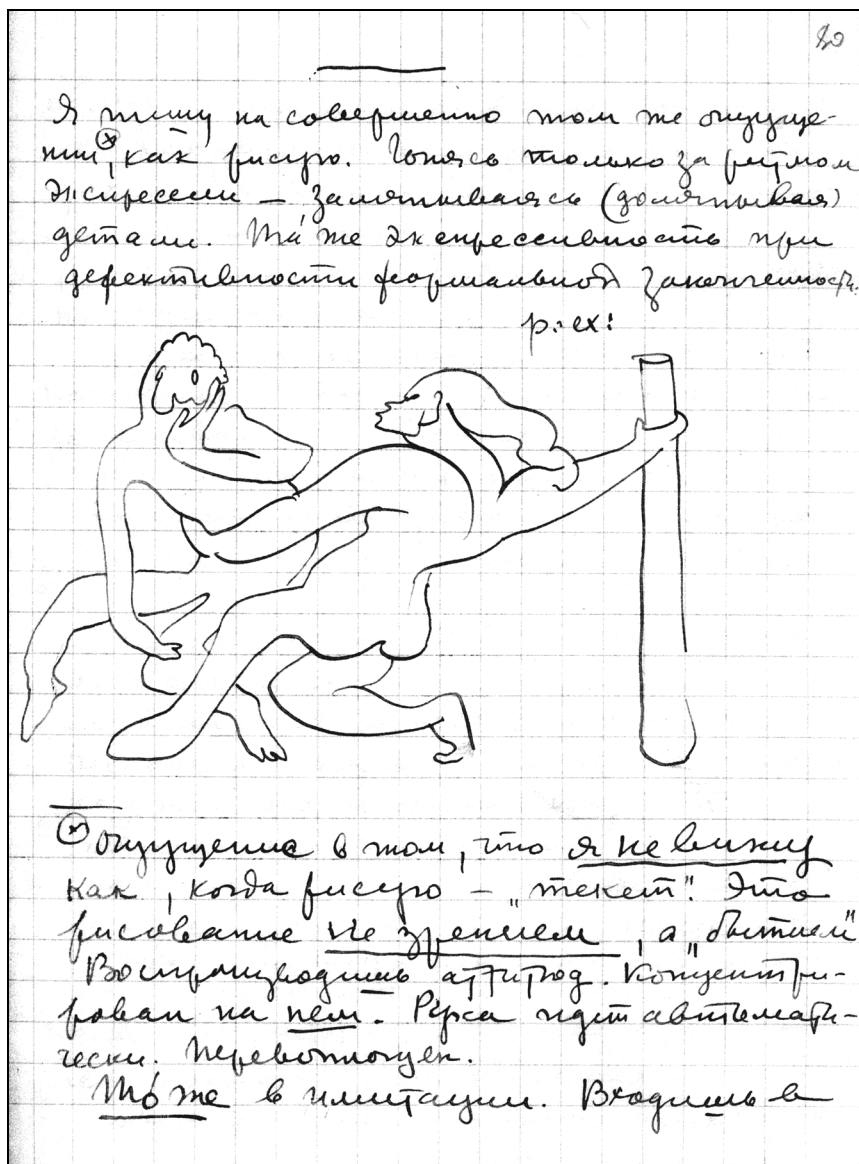 80
Я пишу на совершенно том же ощуще-
нии, как рисую. Гонясь только за ритмом
экспрессии — заляпываясь (доляпывая)
детали. Та́ же экспрессивность при
дефективности формальной законченности.
p. ex:
ощущение в том, что я не вижу
как, когда рисую — „текст". Это
рисование не зрением, а „бытием"
Воспроизводишь аттитюд. Концентри-
рован на нем. Рука идет автомати-
чески. Перевоплощен.
То́ же в имитации. Входишь в